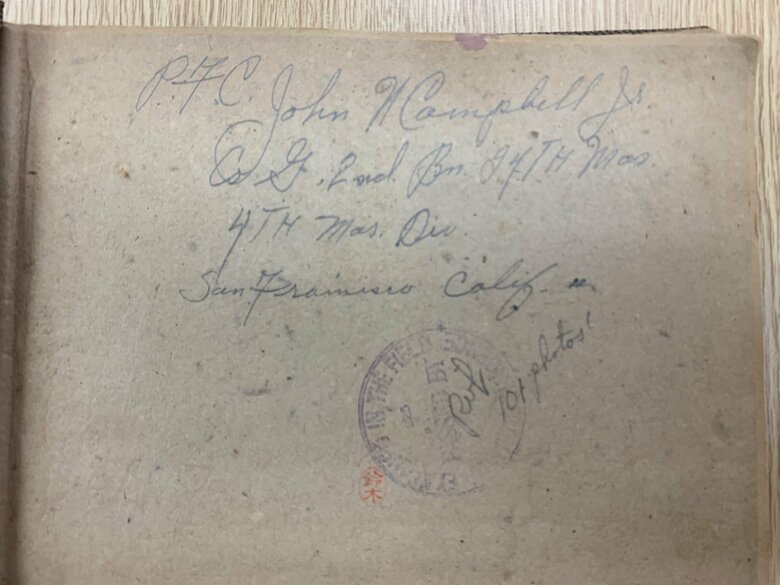 P.F.C. John W Campbell Jr.
Co. G. 2nd Bn. 24TH Mar.
4TH Mar. Div.
San Francisco Calif.
101 photos!
IN THE FIELD
鈴木